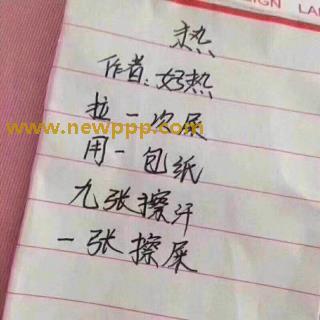 IGN LAN
热
作者:好热
拉一次屎
www.newppp.com
用一包纸
九张擦汗
一张擦屎